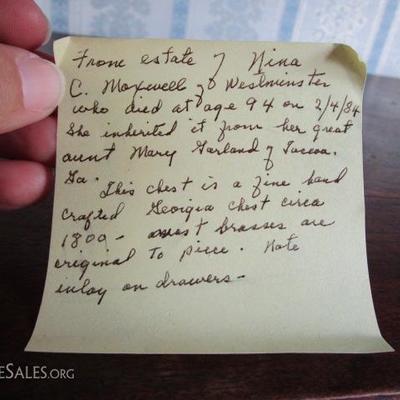 From estate of Nina
C. Maxwell of Westminster
who died at age 94 on 2/4/84
She inherited it from her great
aunt Mary Garland of Toccoa.
Ga. This chest is a fine hand
crafted Georgia chest circa
1800 - most brasses are
original to piece. Note
inlay on drawers -
ESALES.ORG